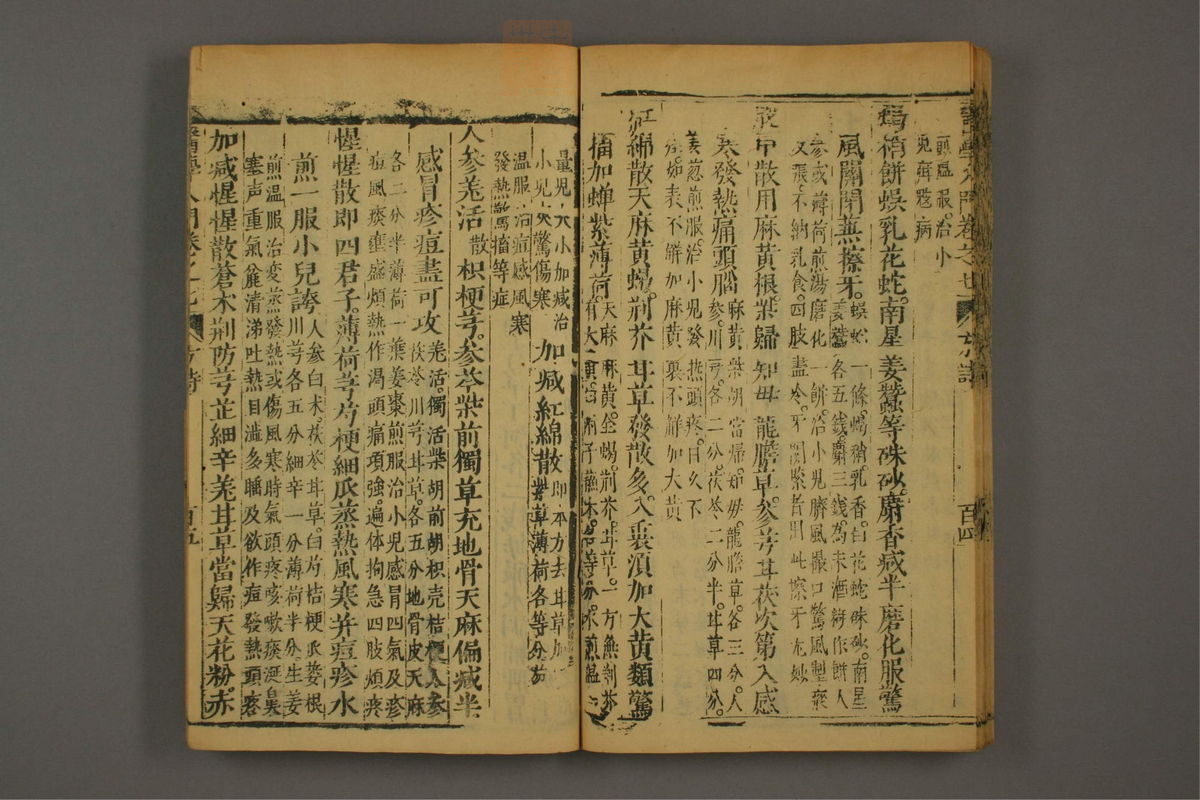 醫學入門卷之七 方詩 百四
煎温服治小
児癖瘧病
蝎稍餅蜈乳花蛇南星姜蠶等硃砂麝香减半磨化服驚
風關閉蕪擦牙
蜈蚣一條蝎稍乳香白花蛇硃砂南星
姜蠶各五錢麝三錢為末酒糊作餅人
參或薄荷煎湯磨化一餅治小児臍風撮口驚風掣瘲
又張不納乳食四肢盡冷牙関緊者則此擦牙尤妙
甲散用麻黃根柴歸知母龍膽草參芎甘茯次第入感
寒發熱痛頭腦
麻黃柴胡當帰知毋龍膽草各三分人
參川芎各二分茯苓二分半甘草四分
姜葱煎服治小児發熱頭疼日久不
如表不觧加麻黃裏不觧加大黃
紅綿散天麻黃蝎荊芥甘草發散多入裏湏加大黃類驚
搐加蝉紫薄荷
天麻麻黃全蝎荊芥甘草一方無荊芥
有大
量児大小加减治
小児夾驚傷寒
温服治痘感風寒
發熱驚搐等症
加减紅綿散
即本方去甘草加
紫草薄荷各等分煎
人參羌活散枳梗芎參苓柴前獨草充地骨天麻偏减半
感冒疹痘盡可攻
羌活獨活柴胡前胡枳壳桔梗人參
茯苓川芎甘草各五分地骨皮天麻
各二分半薄荷一葉姜棗煎服治小児感冒四氣及疹
痘風痰壅盛煩熱作渴頭痛項強遍体拘急四肢煩疼
惺惺散即四君子薄荷芎芍梗細瓜蒸熱風寒并痘疹水
煎一服小兒誇
人參白术茯苓甘草白芍桔梗瓜蔞根
川芎各五分細辛一分薄荷半分生姜
煎温服治変蒸發熱或傷風寒時氣頭疼咳嗽痰涎鼻
塞声重氣麄清涕吐熱目澁多睡及欲作痘發熱頭疼
加减惺惺散蒼术荊防芎芷細辛羌甘草當歸天花粉赤
醫學入門卷之七 方詩 百五